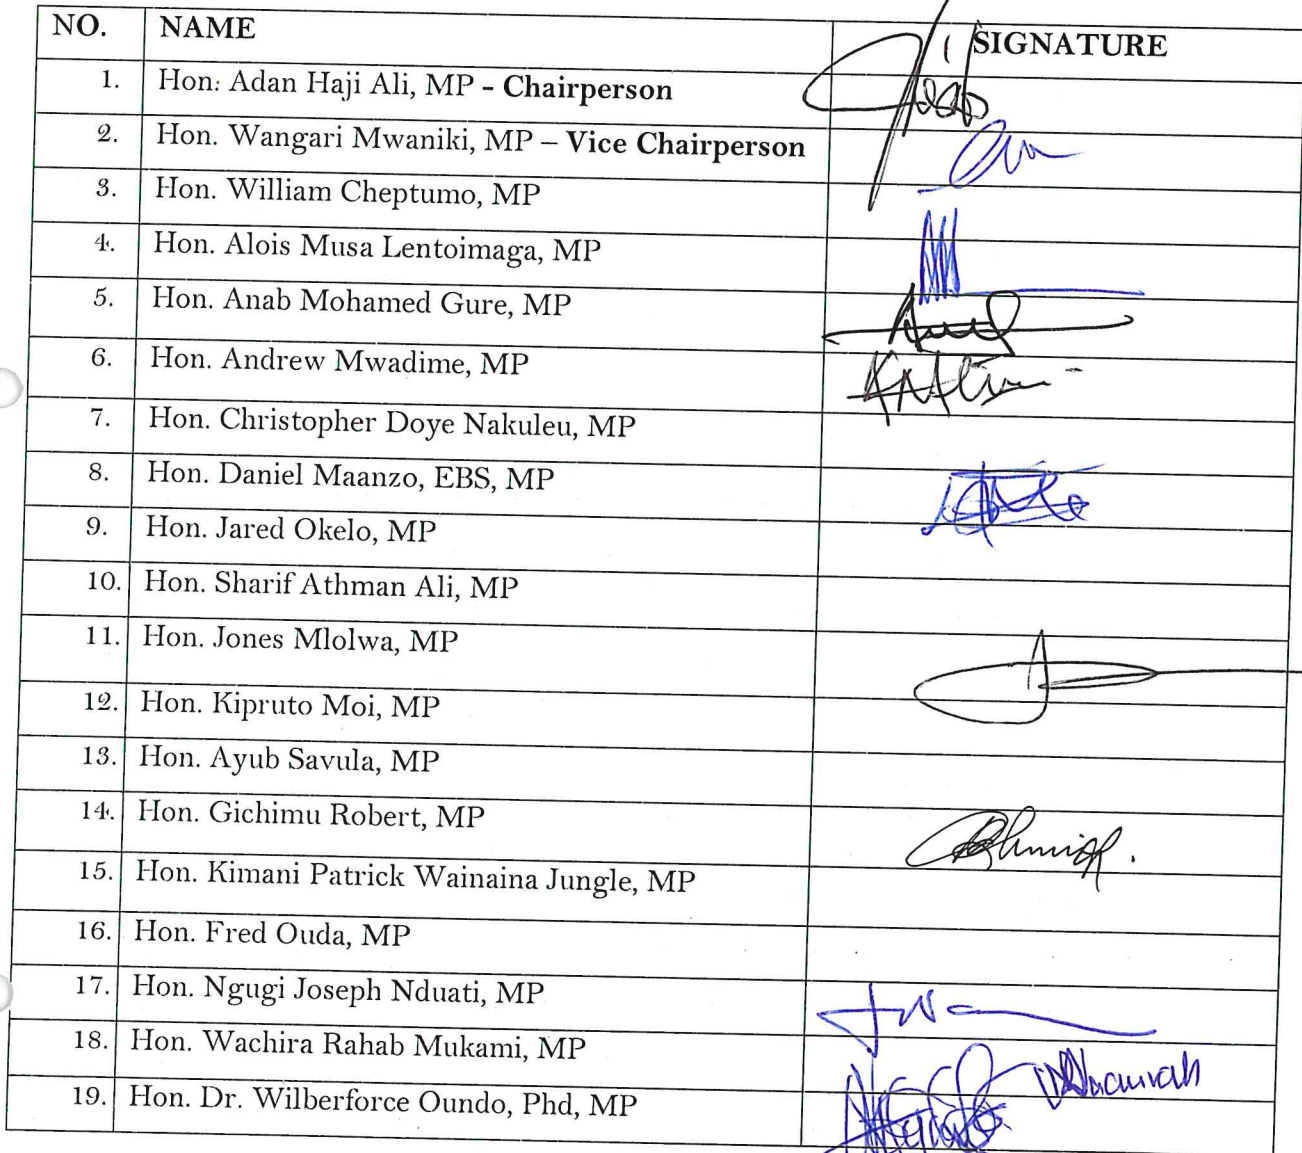 NO. NAME SIGNATURE
1. Hon. Adan Haji Ali, MP - Chairperson
2. Hon. Wangari Mwaniki, MP – Vice Chairperson
3. Hon. William Cheptumo, MP
4. Hon. Alois Musa Lentoimaga, MP
5. Hon. Anab Mohamed Gure, MP
6. Hon. Andrew Mwadime, MP
7. Hon. Christopher Doye Nakuleu, MP
8. Hon. Daniel Maanzo, EBS, MP
9. Hon. Jared Okelo, MP
10. Hon. Sharif Athman Ali, MP
11. Hon. Jones Mlolwa, MP
12. Hon. Kipruto Moi, MP
13. Hon. Ayub Savula, MP
14. Hon. Gichimu Robert, MP
15. Hon. Kimani Patrick Wainaina Jungle, MP
16. Hon. Fred Ouda, MP
17. Hon. Ngugi Joseph Nduati, MP
18. Hon. Wachira Rahab Mukami, MP
19. Hon. Dr. Wilberforce Oundo, Phd, MP